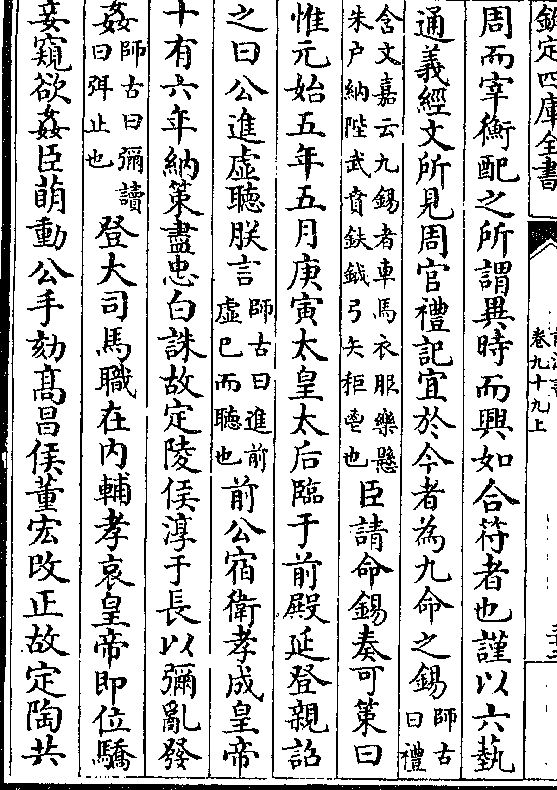 欽定四庫全書
卷九十九上
周而宰衡配之所謂異時而興如合符者也謹以六藝
通義經文所見周官禮記宜於今者為九命之錫師古曰禮
含文嘉云九錫者車馬衣服樂懸
朱戶納陛武賁鈇鉞弓矢秬鬯也臣請命錫奏可策曰
惟元始五年五月庚寅太皇太后臨于前殿延登親詔
之曰公進虛聽朕言師古曰進前虛己而聽也前公宿衛孝成皇帝
十有六年納策盡忠白誅故定陵侯淳于長以彌亂發
姦師古曰彌讀曰弭止也登大司馬職在內輔孝哀皇帝即位驕
妾窺欲姦臣萌動公手劾高昌侯董宏改正故定陶共